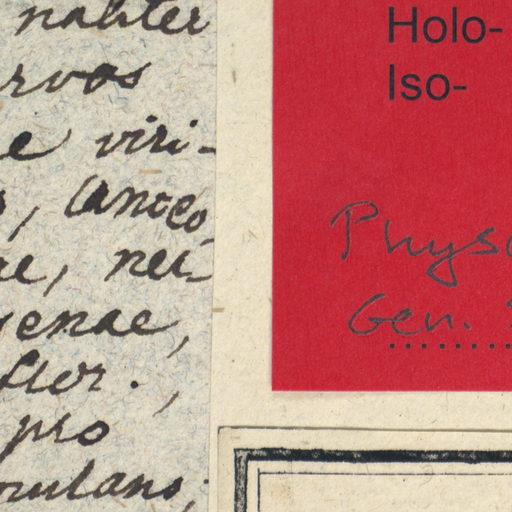 naliter
rvos
e viri-
, lanceo-
ae, nei-
genae,
flor.,
pro
mulans;
Holo-
Iso-
Physo
Gen.